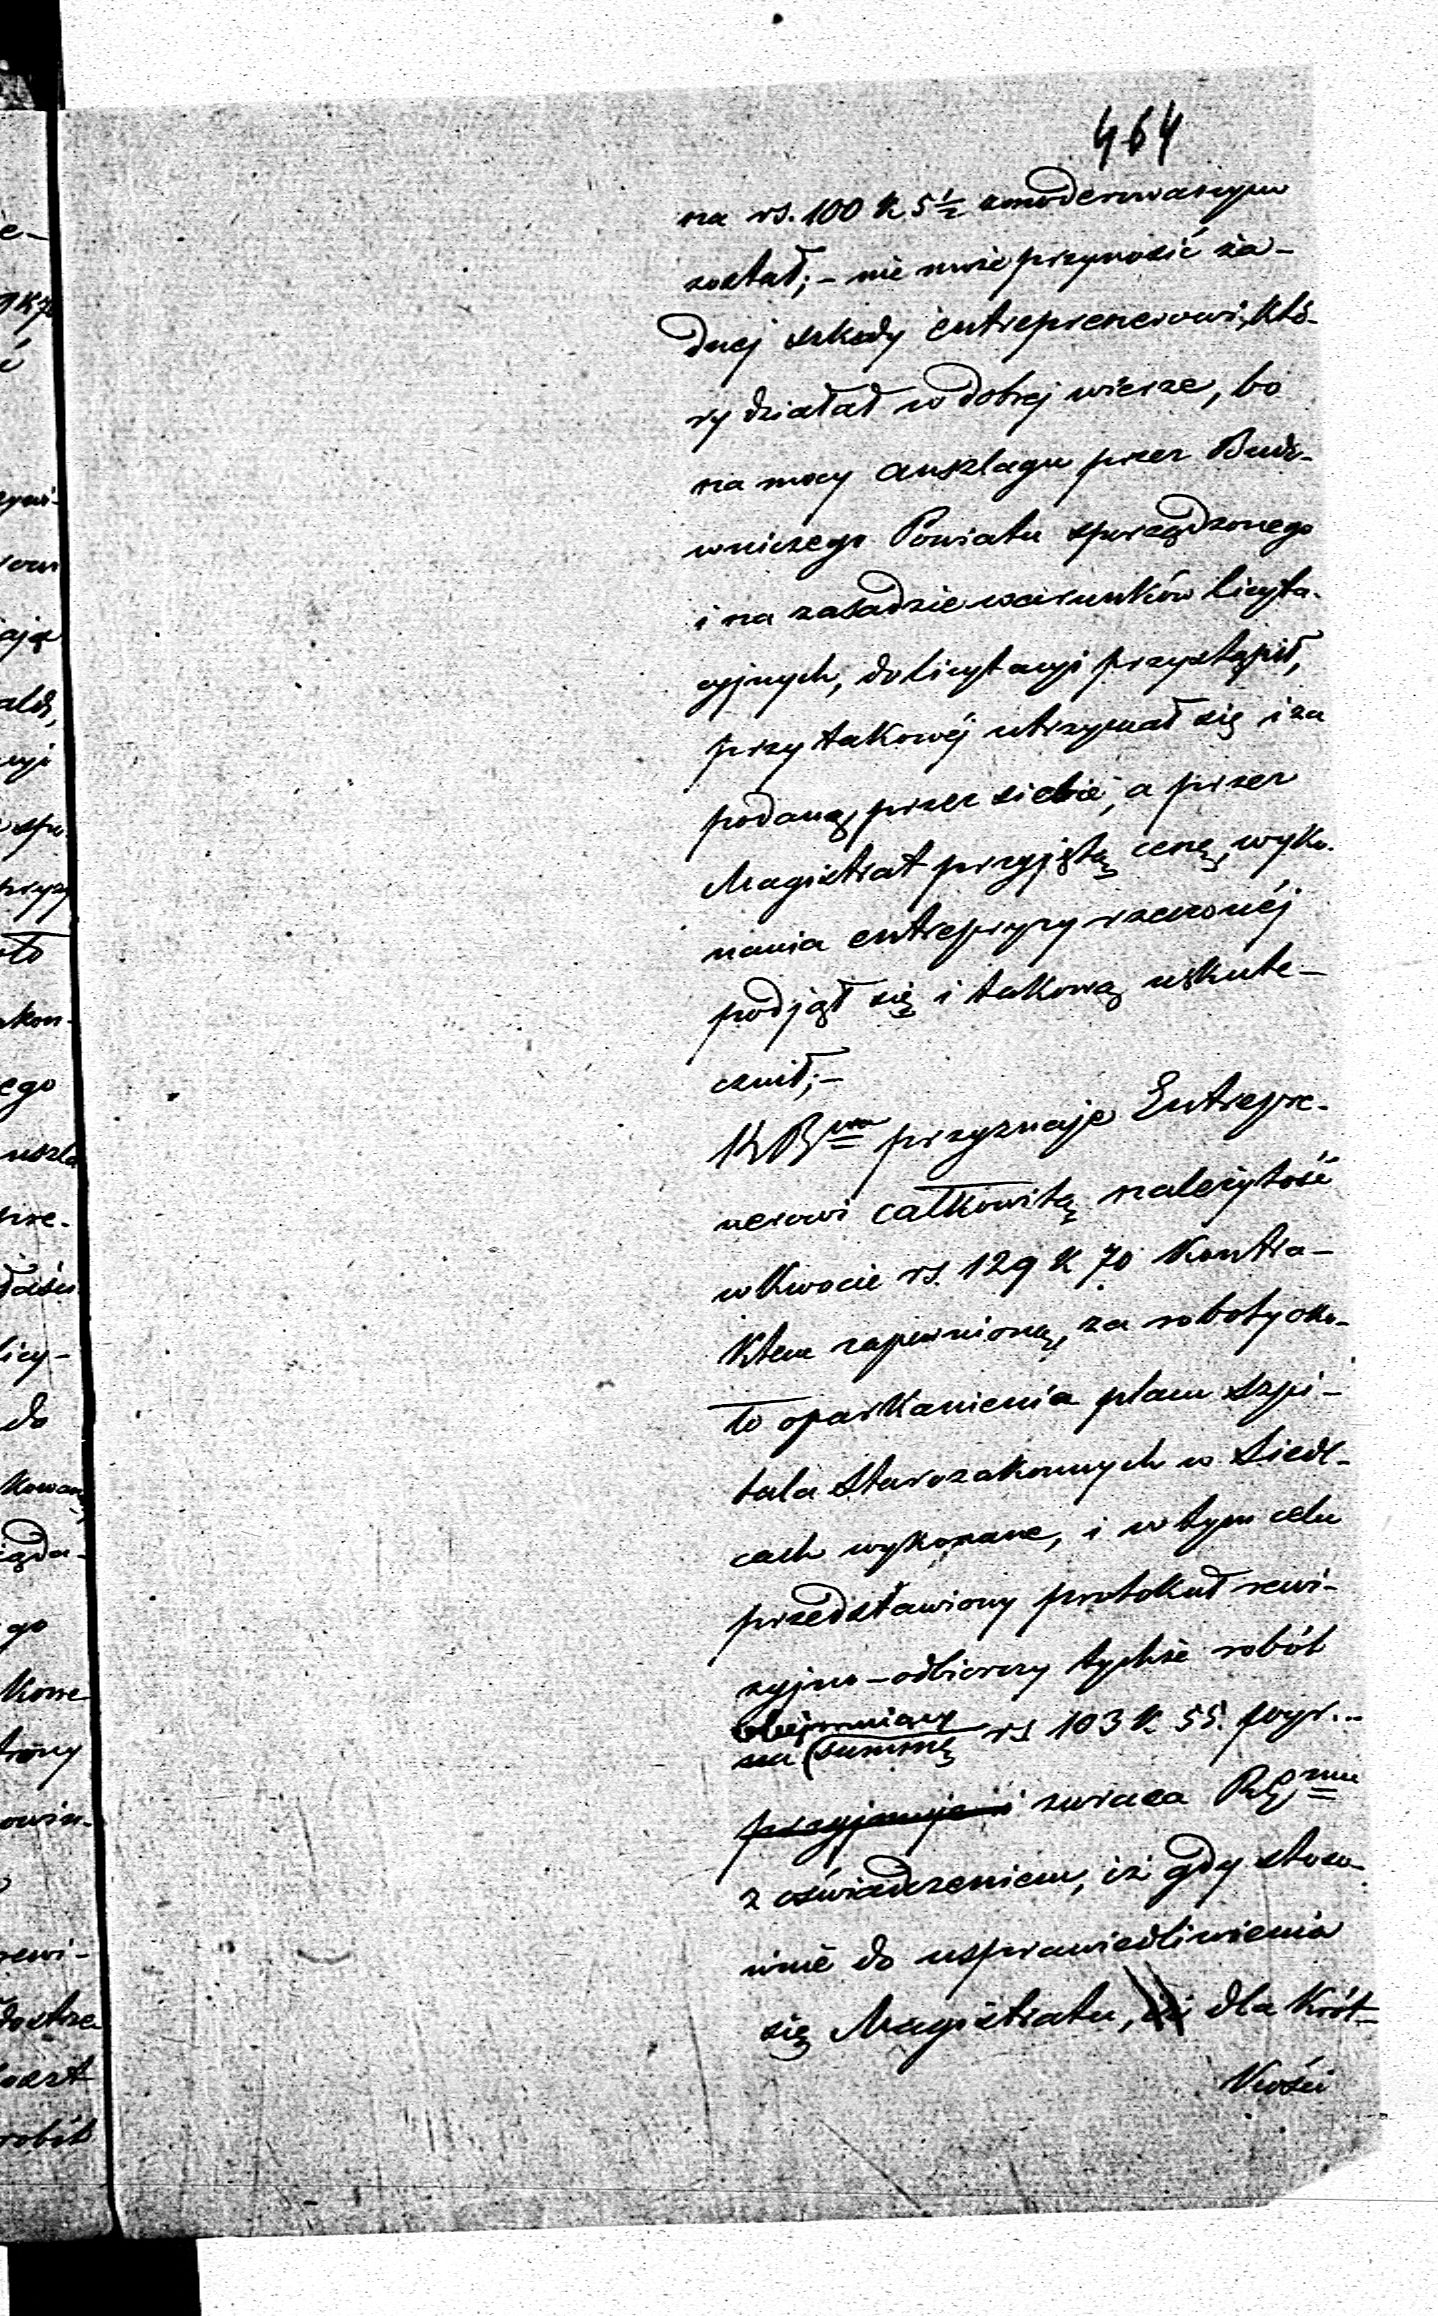 464
na rs. 100 k 5½ zmoderowanym
został; – nie może przynosić ża-
dnej szkody entreprenerowi, któ-
ry działał w dobrej wierze, bo
na mocy anszlagu przez Budo-
wniczego Powiatu sporządzonego
i na zasadzie warunków licyta-
cyjnych, do licytacyi przystąpił,
przy takowéj utrzymał się i za
podaną przez siebie, a przez
Magistrat przyjętą cenę, wyko-
nania entrepryzy rzeczonéj
podjął się i takową uskute-
cznił; –
przyznaje Entrepre-
nerowi całkowitą należytość
w kwocie rs. 129 k 70 kontra-
ktem zapewnioną, za roboty oko-
ło oparkanienia placu szpi-
tala Starozakonnych w Siedl-
cach wykonane, i w tym celu
przedstawiony protokuł rewi-
zyjno-odbiorczy tychże robót
obejmujący
na summę rs 103 k 55. popr...
przyjmuje i zwraca
z oświadczeniem, iż gdy stoso-
wnie do usprawiedliwienia
się Magistratu, iż dla krót-
kości
e-
ć
ając
do
ego
uszla
pre-
licy-
do
go
rewi-
robót